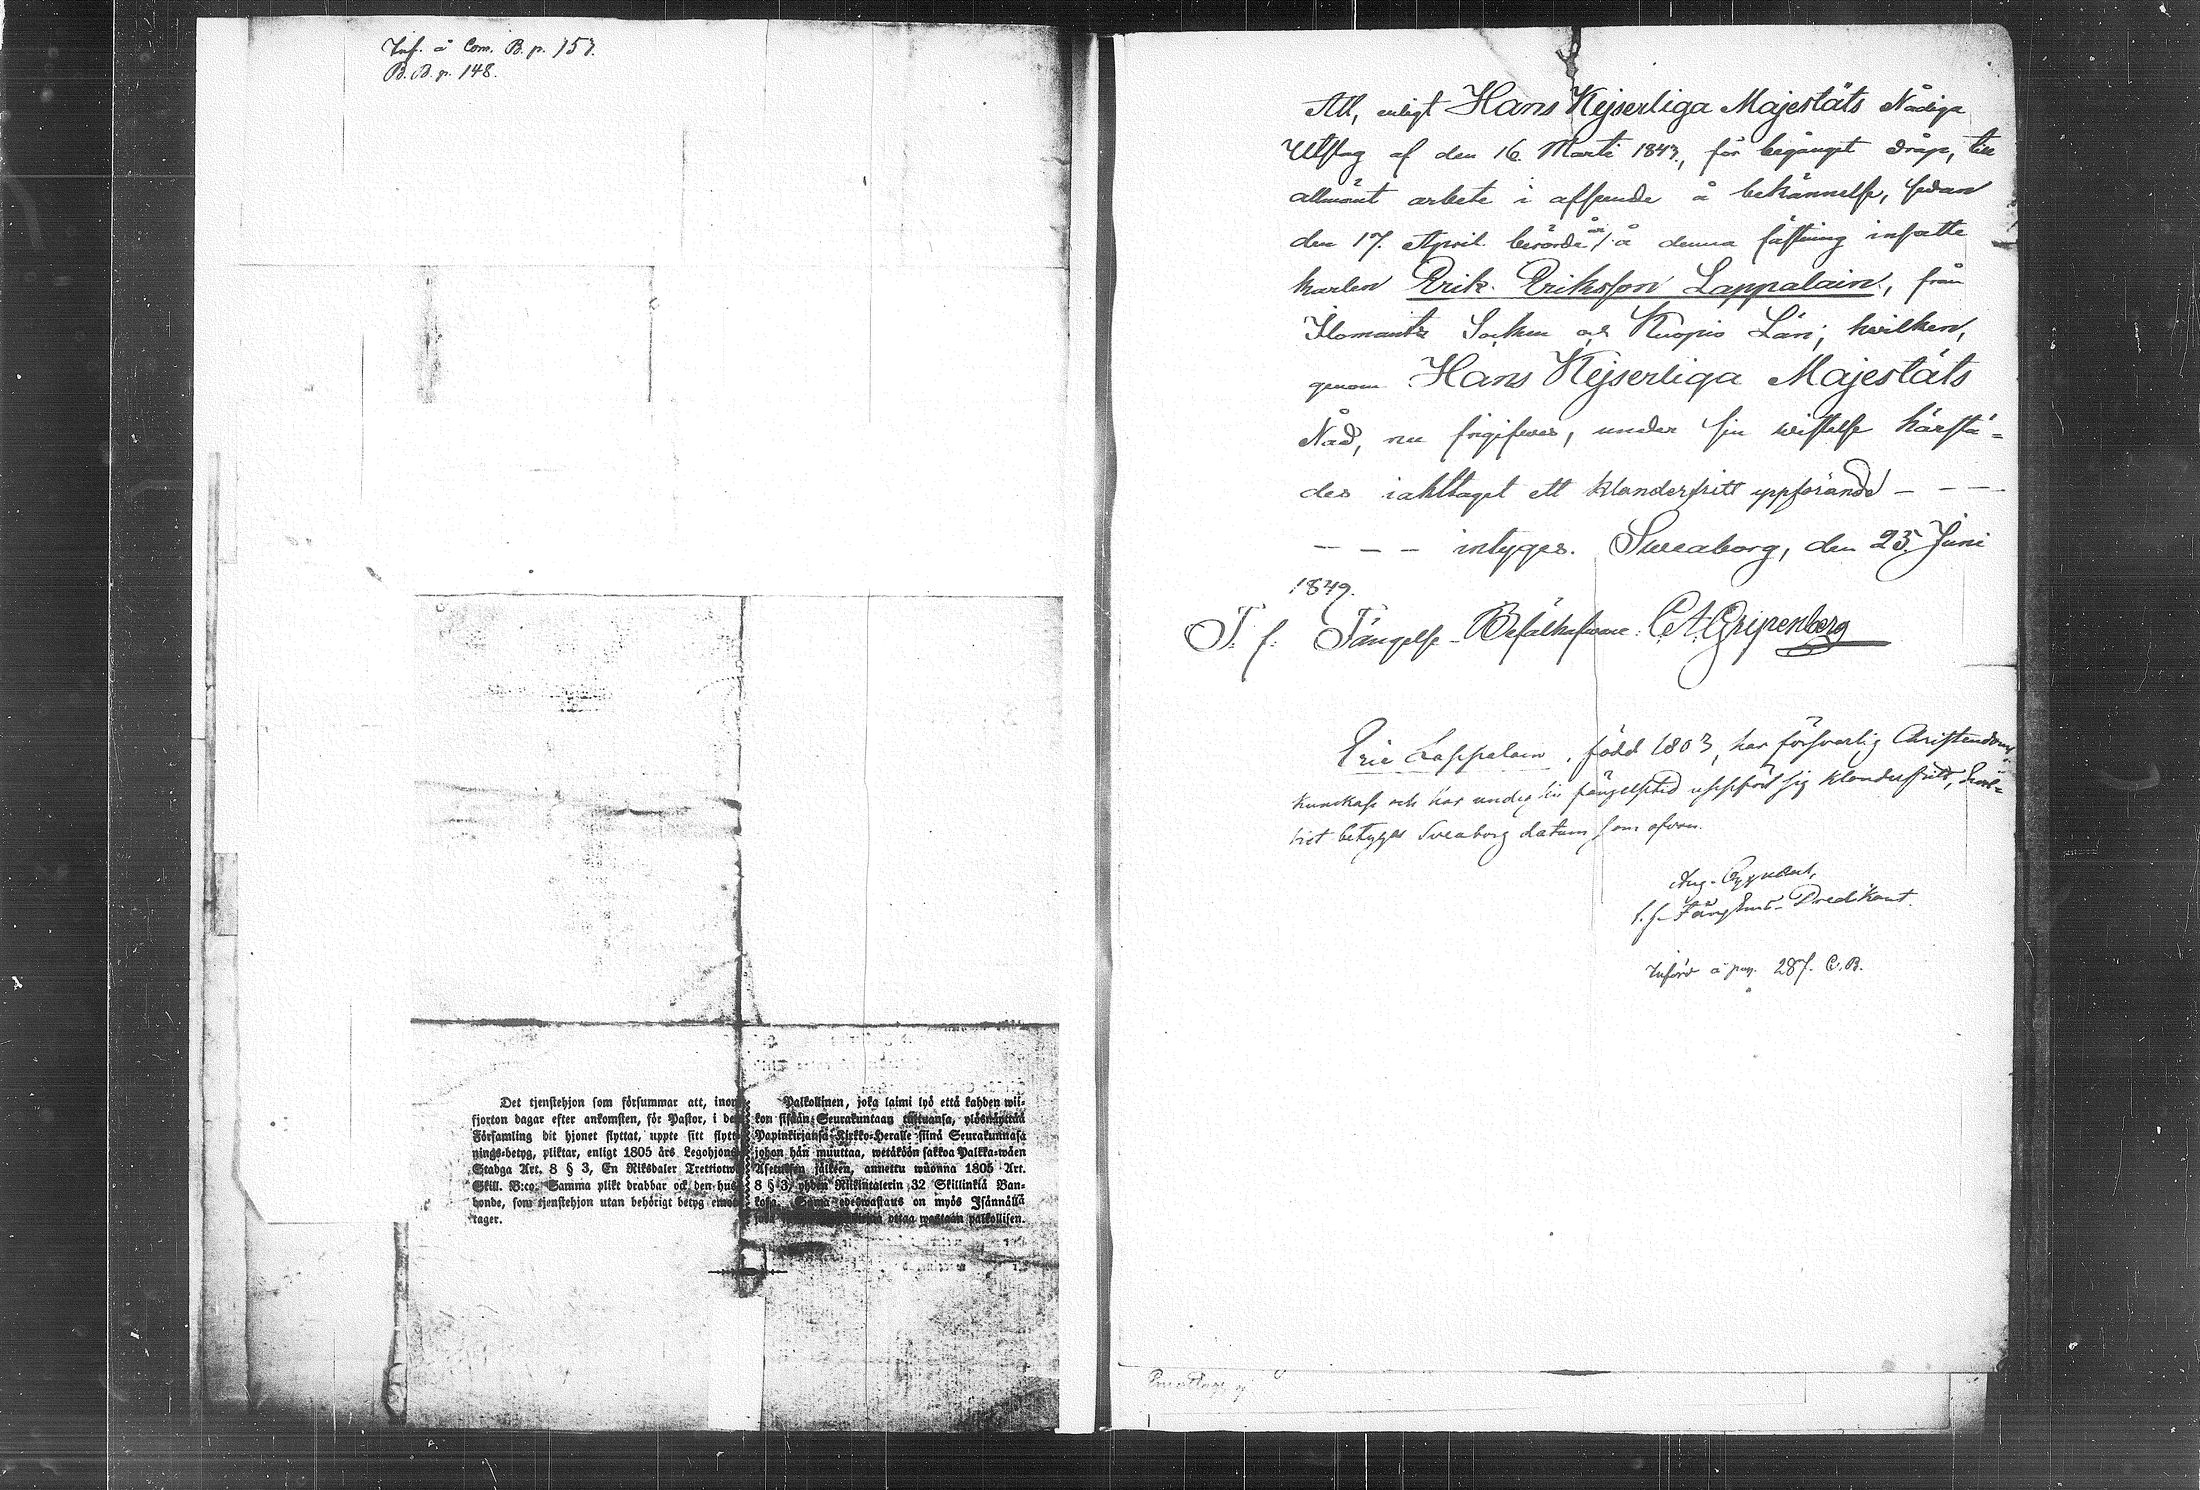 Inf. å Com. B. p. 157.
B. B. p. 148.
Det tjenstehjon som försummar att, inom
fjorton dagar efter ankomsten, för Pastor, i den
Församling dit hjonet flyttat, uppte sitt flytt-
nings-betyg, pliktar, enligt 1805 års Legohjons
Stadga Art. 8 § 3, En Riksdaler Trettiotwå
Skill. B:co. Samma plikt drabbar ock den hus-
bonde, som tjenstehjon utan behörigt betyg emot-
tager.
Palkollinen, joka laimi lyö että kahden wii-
kon sisään Seurakuntaan tultuansa, ylösnäyttää
Papinkirjansa Kirkko-Heralle siinä Seurakunnasa
johon hän muuttaa, wetäköön sakkoa Palkka-wäen
Asetuksen jälkeen, annettu wuonna 1805 Art.
8 § 3, yhden Riikintalerin 32 Skillinkiä Ban-
kosa. Sama edeswastaus on myös Isännällä
ottaa wastaan palkollisen.
Att, enligt Hans Kejserliga Majestäts Nådiga
Utslag af den 16. Martii 1843, för begånget dråp, till
allmänt arbete i afseende å bekännelse, sedan
den 17. April berörde år å denna fästning insatte
karlen Erik Eriksson Lappalain, från
Ilomants Socken och Kuopio Län; hvilken,
genom Hans Kejserliga Majestäts
Nåd, nu frigifves, under sin wistelse härstä-
des iakttaget ett klanderfritt uppförande - - -
- - - intyges. Sweaborg, den 25 Juni
1849.
T. f. Fängelse-Befälhafware: CA Gripenberg
Eric Lappalain, född 1803, har försvarlig Christendoms
kunskap och har under sin fängelsetid uppfört sig klanderfritt,
betygas Sveaborg datum som ofvan.
Aug.
t. f. Fängelse-Predikant.
Införd å pag. 287. C. B.